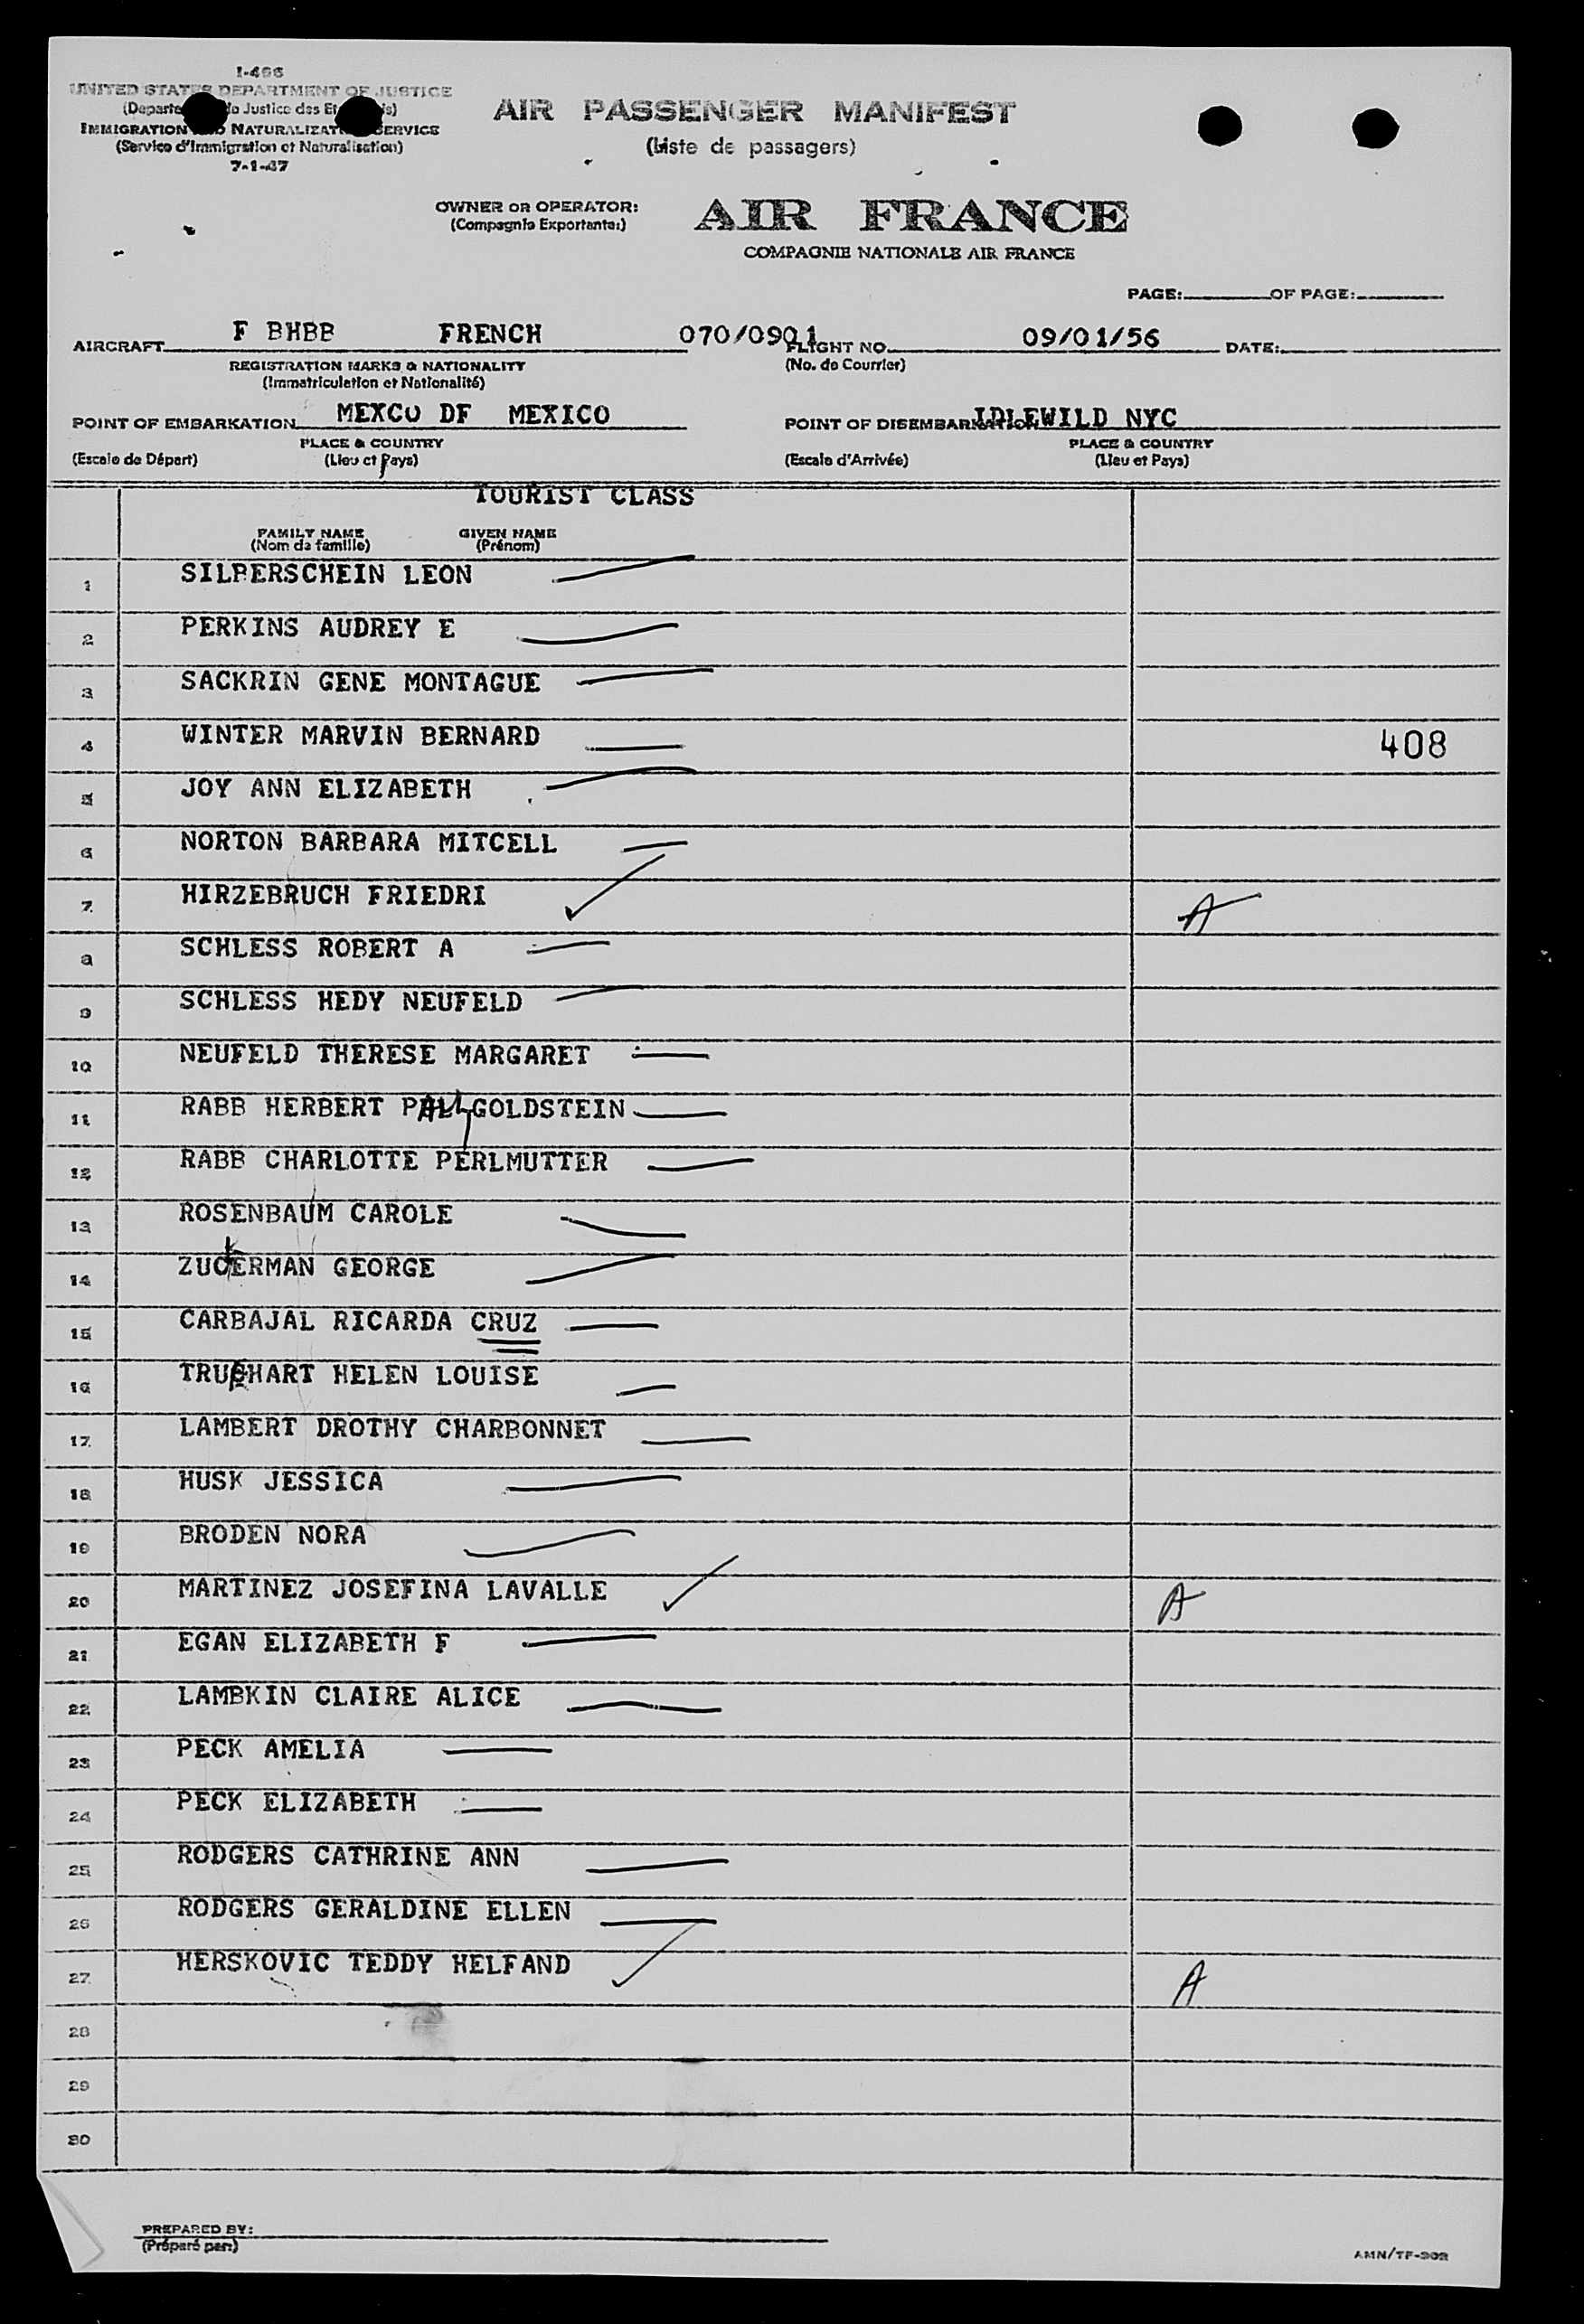 I-466
UNITED STATES DEPARTMENT OF JUSTICE
(Departe Justice des Et is)
IMMIGRATION NATURALIZAT SERVICE
(Service d'Immigration et Naturalisation)
7-1-47
AIR PASSENGER MANIFEST
(Liste de passagers)
OWNER OR OPERATOR:
(Compagnie Exportante:)
AIR FRANCE
COMPAGNIE NATIONALE AIR FRANCE
PAGE: OF PAGE:
AIRCRAFT F BHBB FRENCH 070/0901 FLIGHT NO. 09/01/56 DATE:
REGISTRATION MARKS & NATIONALITY
(Immatriculation et Nationalité)
(No. de Courrier)
POINT OF EMBARKATION MEXCO DF MEXICO POINT OF DISEMBARKATION IDLEWILD NYC
PLACE & COUNTRY PLACE & COUNTRY
(Escale de Départ) (Lieu et Pays) (Escale d'Arrivée) (Lieu et Pays)
TOURIST CLASS
FAMILY NAME GIVEN NAME
(Nom da famille) (Prénom)
1 SILBERSCHEIN LEON
2 PERKINS AUDREY E
3 SACKRIN GENE MONTAGUE
4 WINTER MARVIN BERNARD 408
5 JOY ANN ELIZABETH
6 NORTON BARBARA MITCELL
7 HIRZEBRUCH FRIEDRI A
8 SCHLESS ROBERT A
9 SCHLESS HEDY NEUFELD
10 NEUFELD THERESE MARGARET
11 RABB HERBERT GOLDSTEIN
12 RABB CHARLOTTE PERLMUTTER
13 ROSENBAUM CAROLE
14 ZUCKERMAN GEORGE
15 CARBAJAL RICARDA CRUZ
16 HELEN LOUISE
17 LAMBERT DROTHY CHARBONNET
18 HUSK JESSICA
19 BRODEN NORA
20 MARTINEZ JOSEFINA LAVALLE A
21 EGAN ELIZABETH F
22 LAMBKIN CLAIRE ALICE
23 PECK AMELIA
24 PECK ELIZABETH
25 RODGERS CATHRINE ANN
26 RODGERS GERALDINE ELLEN
27 HERSKOVIC TEDDY HELFAND A
28
29
30
PREPARED BY:
(Préparé par:)
AMN/TF-302